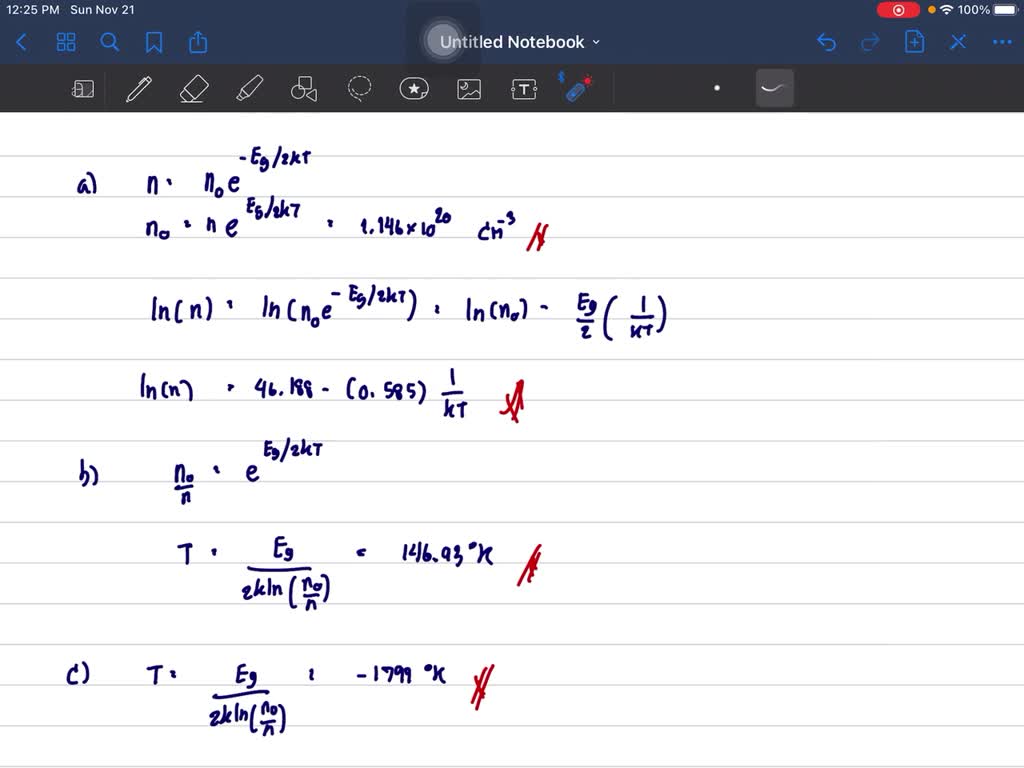 12:25 PM Sun Nov 21 100%
Untitled Notebook
a) n = n₀e^(-Eg/2kT)
n₀ = n e^(Eg/2kT) = 1.146×10²⁰ cm⁻³
ln(n) = ln(n₀e^(-Eg/2kT)) = ln(n₀) - Eg/2 (1/kT)
ln(n) = 46.188 - (0.585) 1/kT
b) n₀/n = e^(Eg/2kT)
T = Eg/2kln(n₀/n) = 146.93 °K
c) T = Eg/2kln(n₀/n) = -1799 °K